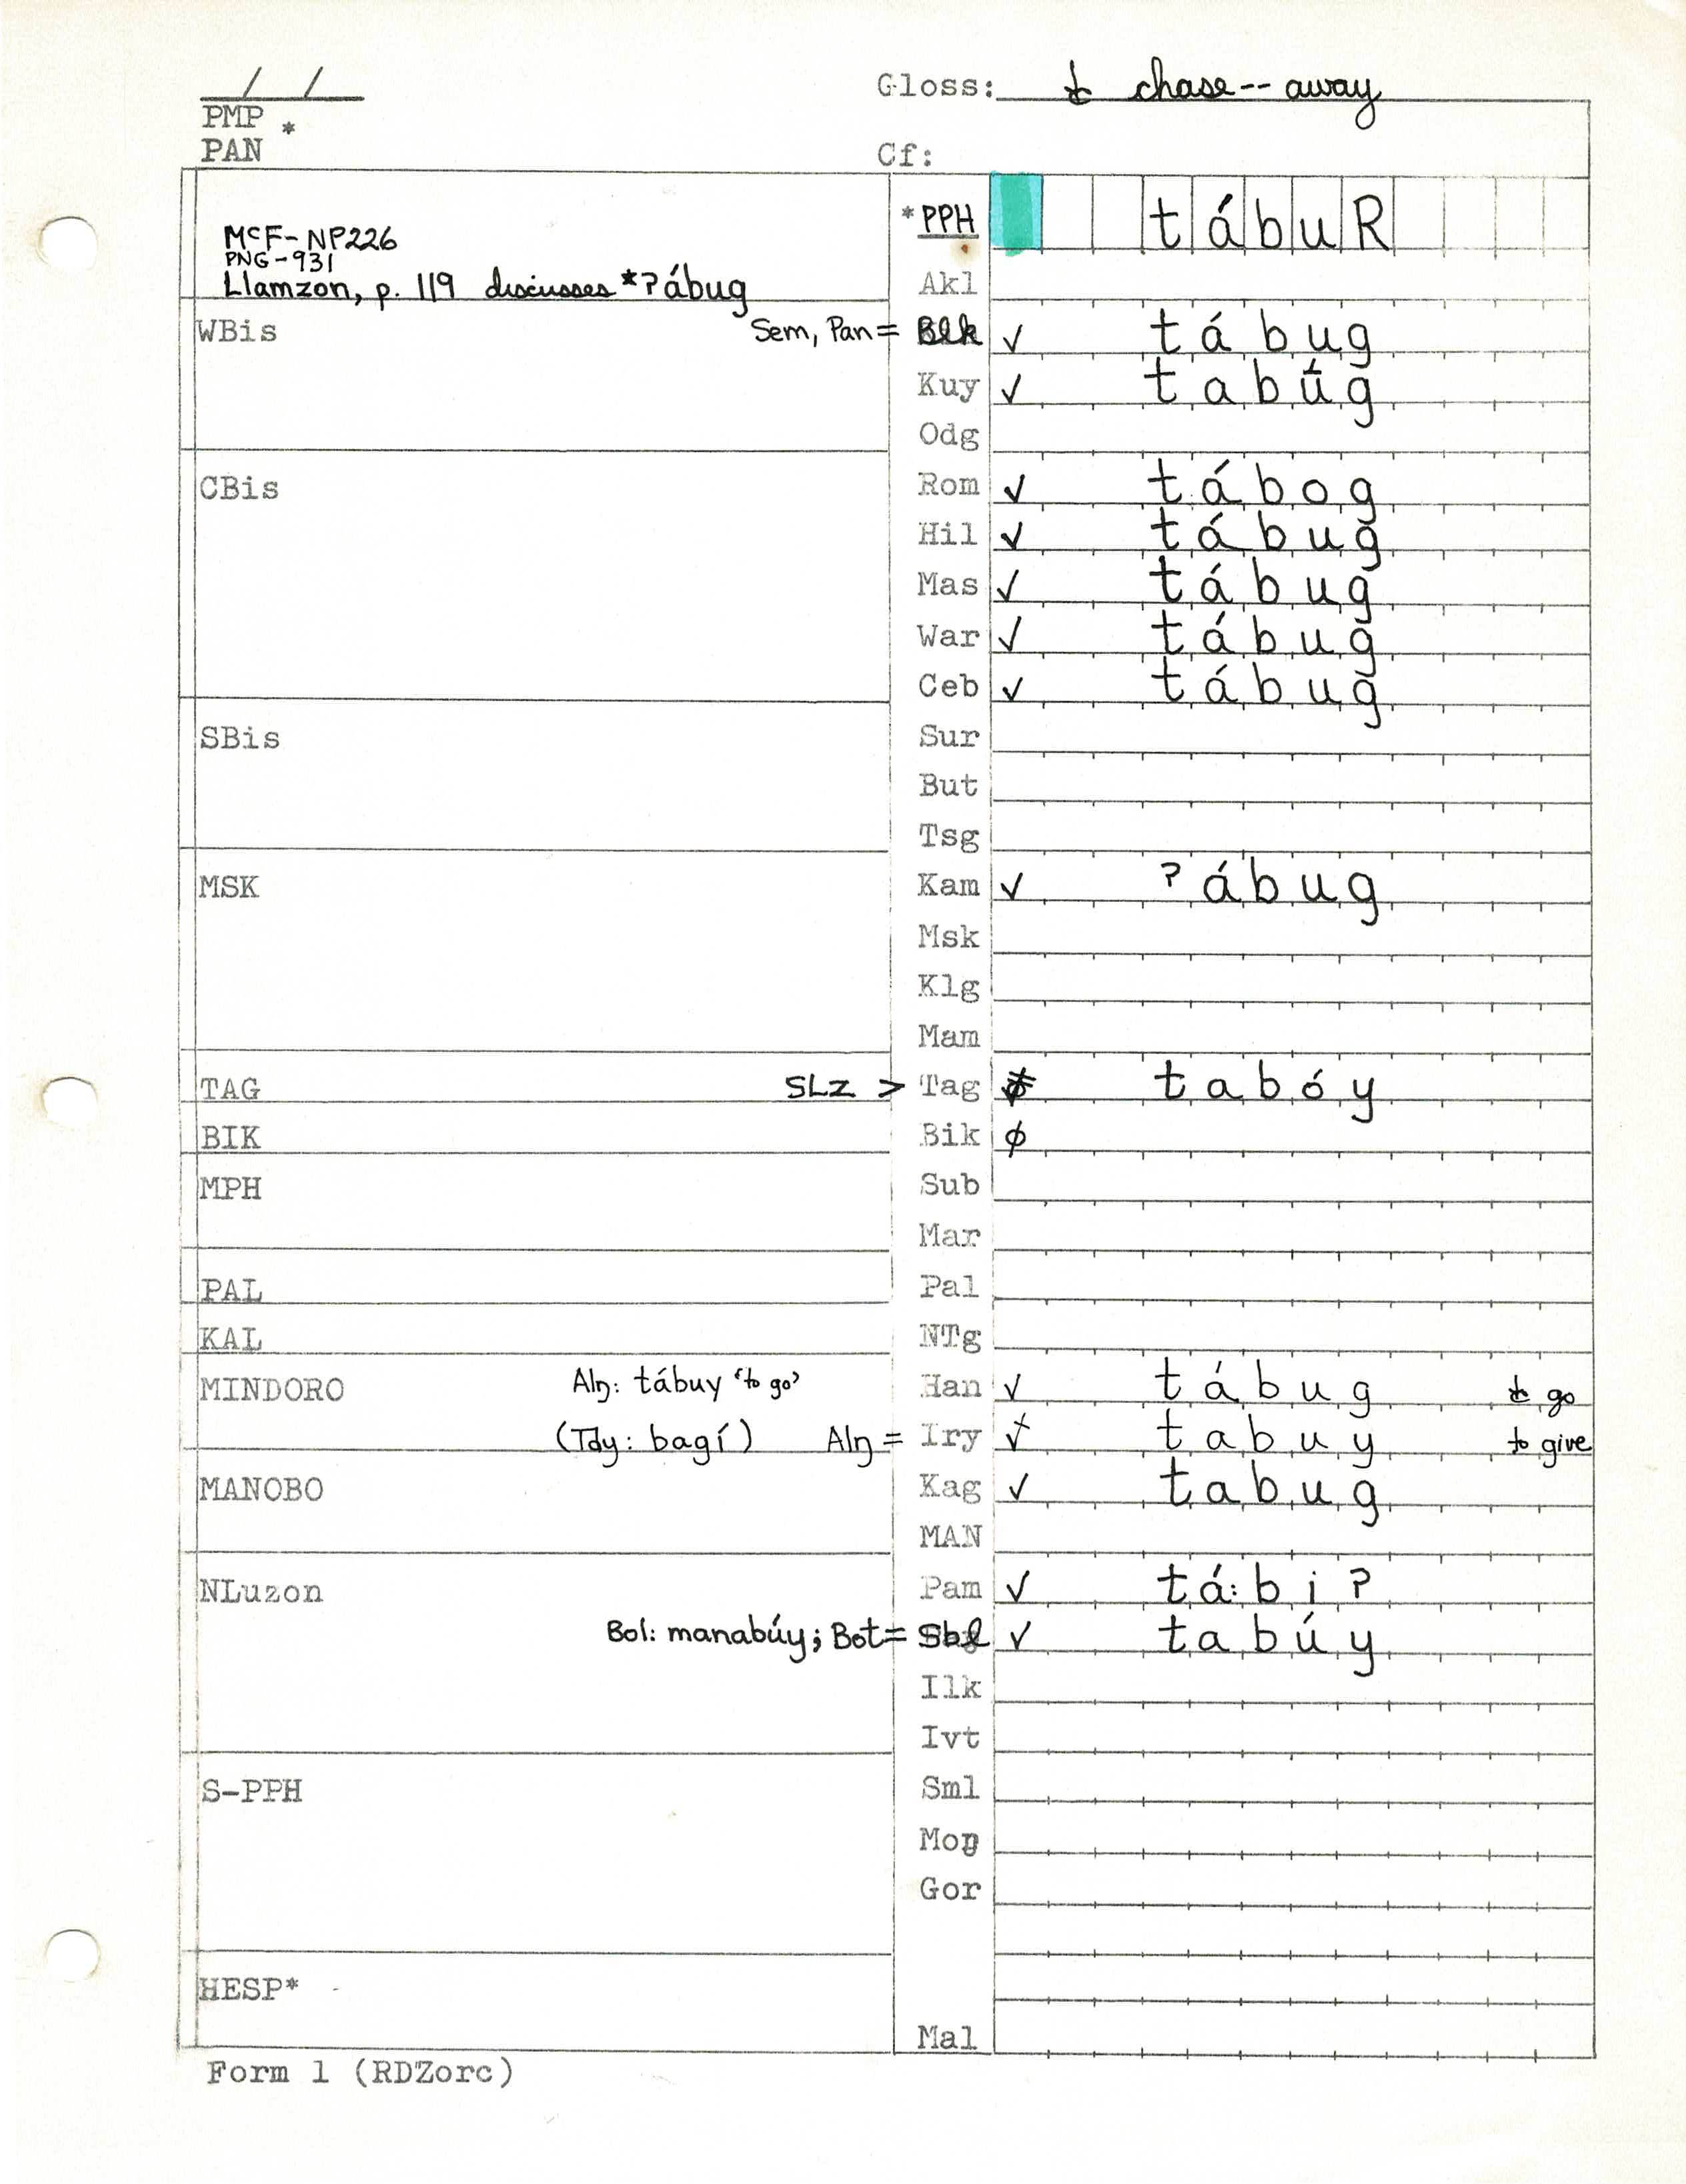 / /
Gloss: to chase-- away
PMP *
PAN
Cf:
*PPH tábuR
McF-NP226
PNG-931
Llamzon, p. 119 discusses *ʔábug
Akl
WBis Sem, Pan = Blk ✓ tábug
Kuy ✓ tabúg
Odg
CBis Rom ✓ tábog
Hil ✓ tábug
Mas ✓ tábug
War ✓ tábug
Ceb ✓ tábug
SBis Sur
But
Tsg
MSK Kam ✓ ʔábug
Msk
Klg
Mam
TAG SLZ > Tag tabóy
BIK Bik ∅
MPH Sub
Mar
PAL Pal
KAL NTg
MINDORO Alŋ: tábuy ‘to go’ Han ✓ tábug to go
(Tdy: bagí) Alŋ = Iry ✓ tabuy to give
MANOBO Kag ✓ tabug
MAN
NLuzon Pam ✓ tá:biʔ
Bol: manabúy; Bot = Sbl ✓ tabúy
Ilk
Ivt
S-PPH Sml
Moŋ
Gor
HESP*
Mal
Form 1 (RDZorc)